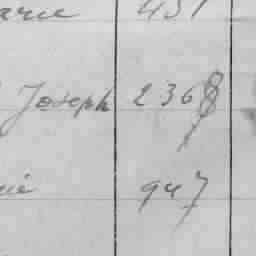 arie 451
Joseph 236
ie 947